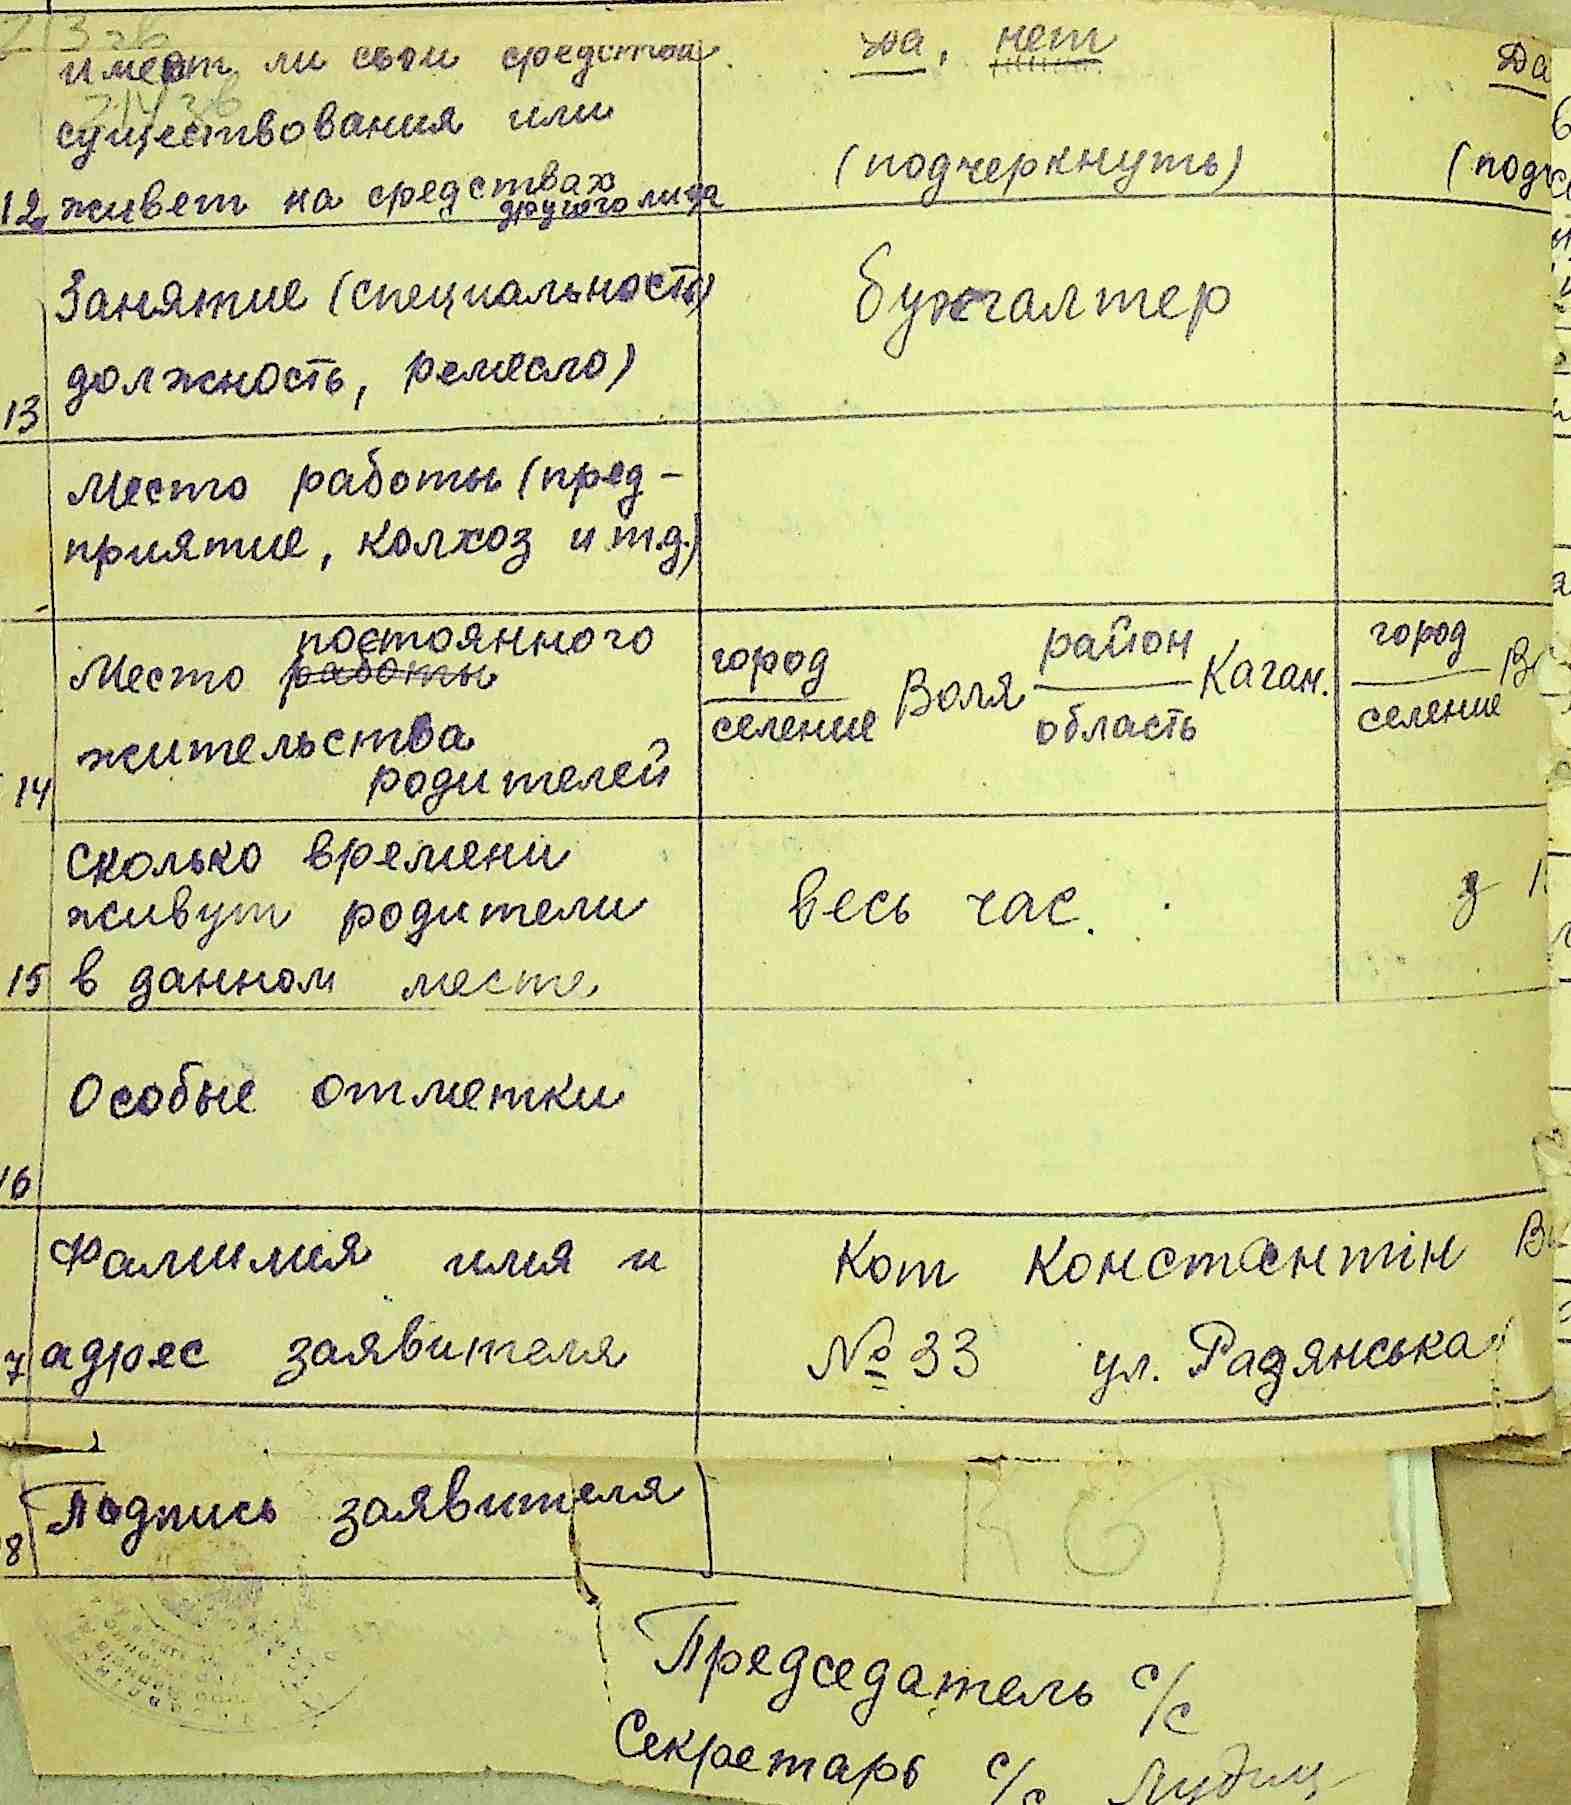 имеют ли свои средства да, нет Да
существования или
(подчеркнуть)
12 живет на средствах
другого лица
Занятие (специальность бухгалтер
13 должность, ремесло)
Место работы (пред-
приятие, колхоз и т.д.)
постоянного район город
Место работы город Воля Каган.
селение область селение
жительства
14 родителей
Сколько времени
живут родители весь час.
15 в данном месте
Особые отметки
16
Фамилия имя и Кот Константін
7 адрес заявителя № 33 ул. Радянська
8 Подпись заявителя Кот
Председатель с/с
Секретарь с/с